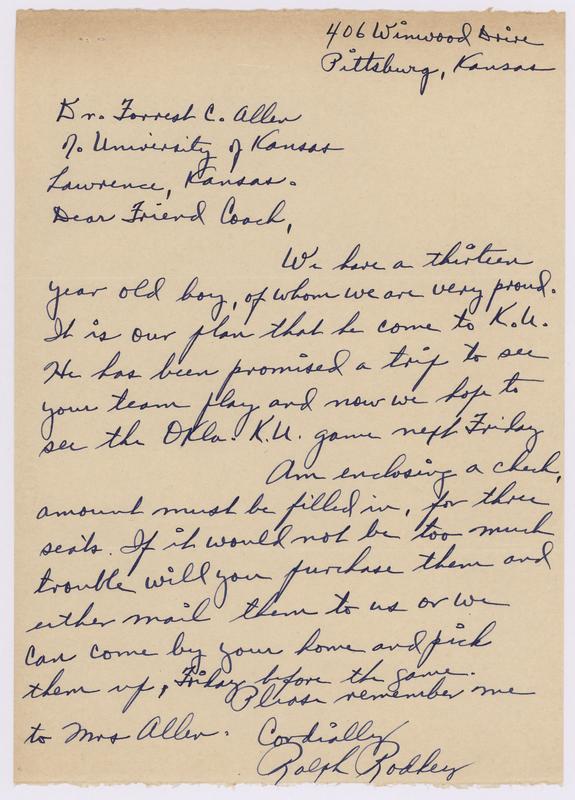 406 Winwood Drive
Pittsburg, Kansas
Dr. Forrest C. Allen
℅ University of Kansas
Lawrence, Kansas.
Dear Friend Coach,
We have a thirteen
year old boy, of whom we are very proud.
It is our plan that he come to K.U.
He has been promised a trip to see
your team play and now we hope to
see the Okla. K.U. game next Friday
Am enclosing a check,
amount must be filled in, for three
seats. If it would not be too much
trouble will you purchase them and
either mail them to us or we
can come by your home and pick
them up, Friday before the game.
Please remember me
to Mrs Allen. Cordially
Ralph Rodkey